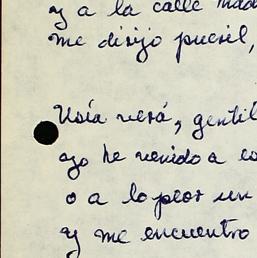 y a la calle
me dirijo pueril,
Usía verá, gentil
yo he venido a
o a lo peor un
y me encuentro